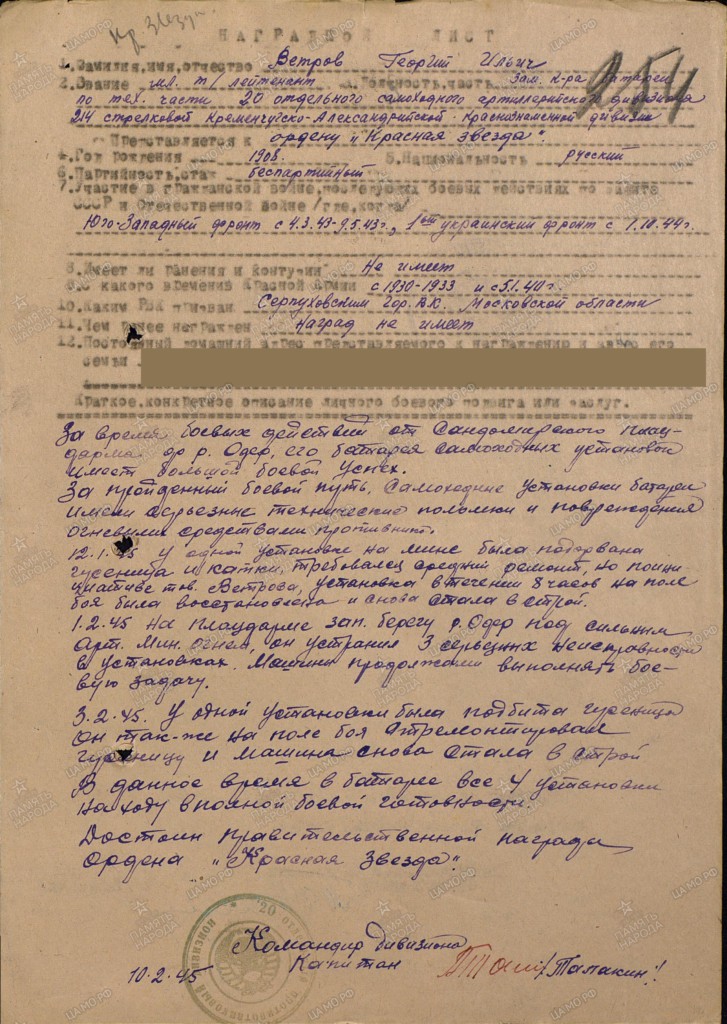 Кр. Звезд
254
НАГРАДНОЙ ЛИСТ
1. Фамилия, имя, отчество Ветров Георгий Ильич
2. Звание мл. т/лейтенант 3. Должность, часть Зам. к-ра батареи
по тех. части 20 отдельного самоходного артиллерийского дивизиона
214 стрелковой Кременчугско-Александрийской Краснознаменной дивизии
Представляется к ордену "Красная звезда".
4. Год рождения 1908. 5. Национальность русский
6. Партийность, стаж беспартийный
7. Участие в гражданской войне, последующих боевых действиях по защите
СССР и Отечественной войне /где, когда/
Юго-Западный фронт с 4.3.43-9.5.43г., 1ый украинский фронт с 1.10.44г.
8. Имеет ли ранения и контузии Не имеет
9. С какого времени в Красной Армии с 1930-1933 и с 5.1.40г.
10. Каким РВК призван Серпуховским гор. ВК. Московской области
11. Чем ранее награжден Наград не имеет
12. Постоянный домашний адрес представляемого к награждению и адрес его
семьи
Краткое, конкретное описание личного боевого подвига или заслуг.
За время боевых действий от Сандомирского плац-
дарма др р. Одер, его батарея самоходных установок
имеет большой боевой успех.
За пройденный боевой путь, самоходные установки батареи
имели серьезные технические поломки и повреждения
огневыми средствами противник.
12.1.45 у одной установке на мине была подорвана
гусеница и катки, требовалец средний ремонт, но по ини-
циативе тов. Ветрова, установка в течении 8 часов на поле
боя была восстановлена и снова стала в строй.
1.2.45 на плацдарме зап. берегу р. Одер под сильным
Арт. Мин. огнем, он устранил 3 серьезных неисправности
в установках. Машины продолжали выполнять бое-
вую задачу.
3.2.45. У одной установки была подбита гусеница
он так-же на поле боя отремонтировал
гусеницу и машина снова стала в строй
В данное время в батарее все 4 установки
на ходу в полной боевой готовности.
Достоин правительственной награды
Ордена "Красная Звезда".
Командир дивизиона
Капитан /Талакин/
10.2.45